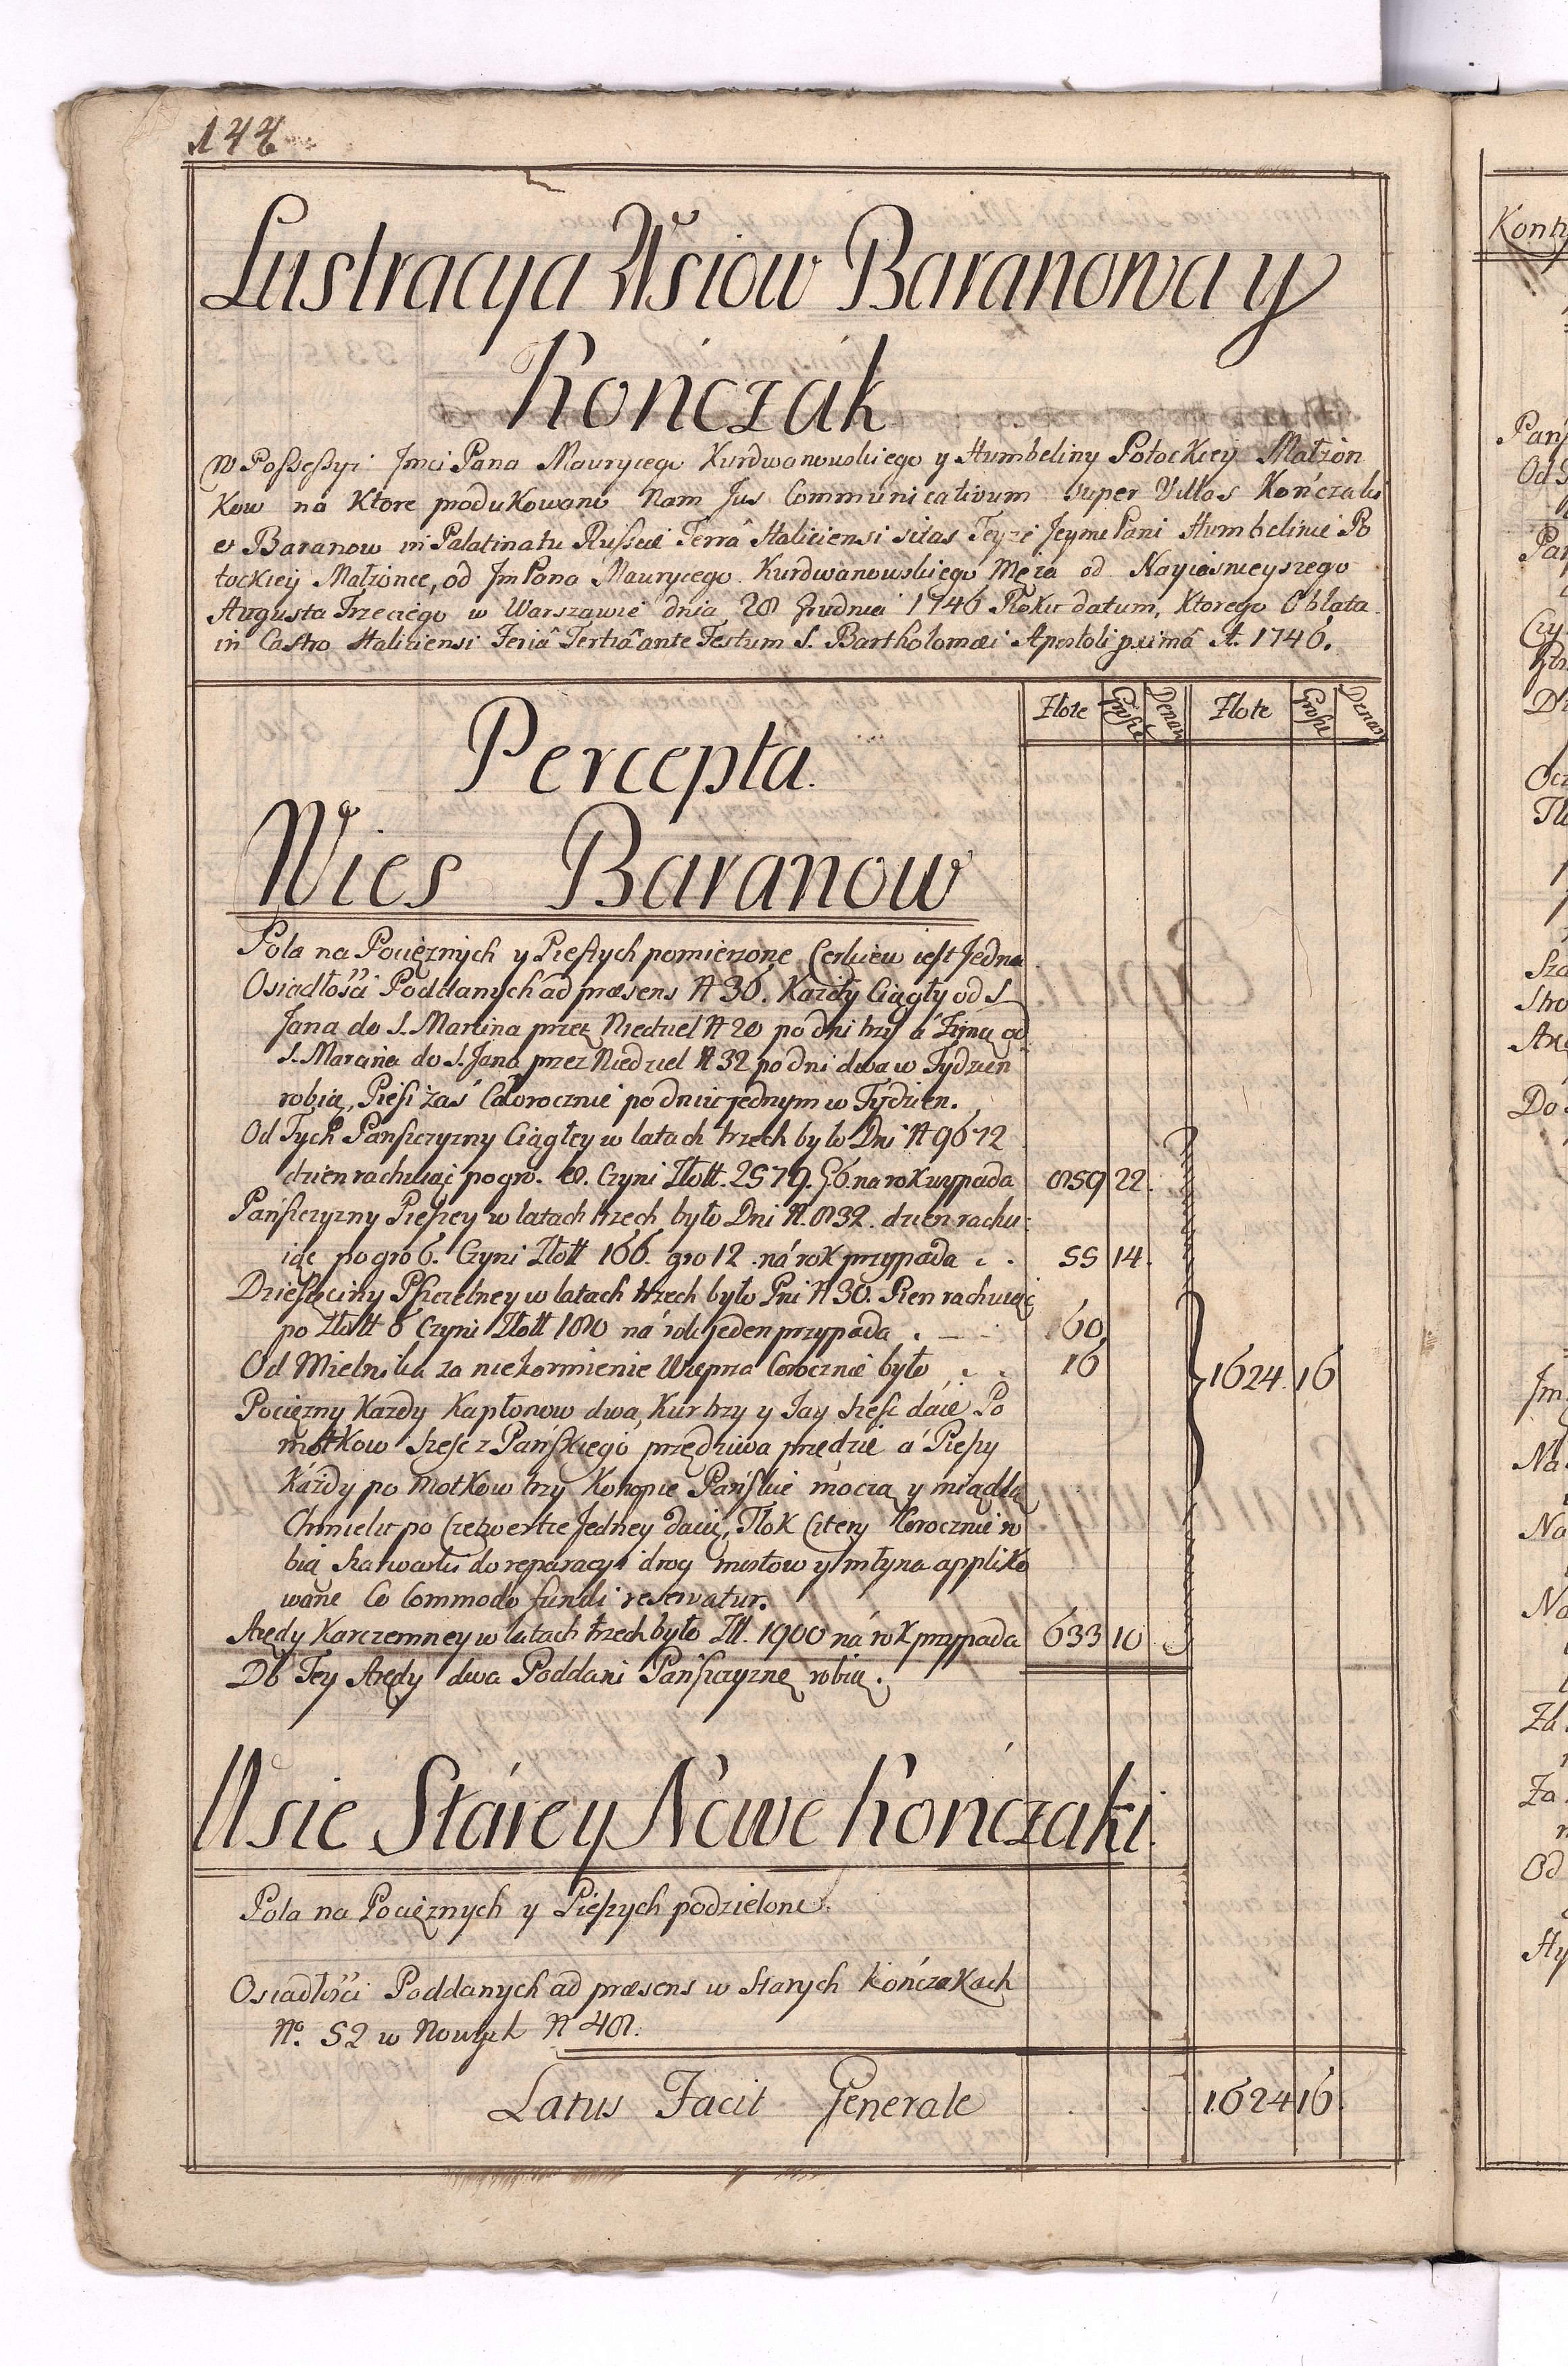 144
Lustracya Wsiow Baranowa y
Kończak
W Possessyi Jmci Pana Maurycego Kurdwanowskiego y Humbeliny Potockiey Małżon
kow na Ktore produkowano Nam Jus Communicativum super Villas Kończaki
et Baranow in Palatinatu Russiæ Terrâ Haliciensi sitas Teyże Jeymć Pani Humbelinie Po
tockiey Małżonce, od Jm Pana Maurycego Kurdwanowskiego Męża od Nayiasnieyszego
Augusta Trzeciego w Warszawie dnia 28 Grudnia 1746 Roku datum, Ktorego Oblata
in Castro Haliciensi Feriâ Tertiâ ante Festum S. Bartholomæi Apostoli proximâ A. 1746.
Złote Grosze Denar Złote Grosze Denar
Percepta.
Wies Baranow
Pola na Pociężnych y Pieszych pomierzone Cerkiew iest Jedna
Osiadłości Poddanych ad præsens N 36. Każdy Ciągły od S
Jana do S. Marcina przez Niedziel N 20 po dni trzy a Zimą od
S. Marcina do S. Jana przez Niedziel N 32 po dni dwa w Tydzien
robią, Piesi zaś Całorocznie po dniu jednym w Tydzien.
Od Tych Panszczyzny Ciągłey w latach trzech było Dni N 9672
dzien rachuiąc po gro. 8. Czyni Złott. 2579. g 6. na rok wypada 859 22.
Pańszczyzny Pieszey w latach trzech było Dni N. 832. dzien rachu:
iąc po gro 6. Czyni Złott 166. gro 12. ná rok przypada 55 14.
Dziesięciny Pszczelney w latach trzech było Pni N 30. Pien rachuiąc
po Złott 6 Czyni Złott 180 ná rok jeden przypada 60
Od Mielnika za niekormienie Wieprza Corocznie było 16 1624. 16
Pociężny Każdy Kapłonow dwa, Kur trzy y Jay sześć dáie Po
motkow sześć z Pańskiego przędziwa przędzie á Pieszy
Káżdy po Motkow trzy Konopie Pańskie moczą y miądlą
Chmielu po Czetwertce Jedney daią, Tłok Cztery Corocznie ro
bią Szarwarki do reparacyi drog mostow y młyna appliko
wane Co Commodo fundi reservatur.
Arędy Karczemney w latach trzech było Zł. 1900 ná rok przypada 633 10
Do Tey Arędy dwa Poddani Pańszczyznę robią.
Wsie Stáre y Nowe Kończaki.
Pola na Pociężnych y Pieszych podzielone.
Osiadłości Poddanych ad præsens w Starych Kończakach
No. 52 w Nowych N 48.
Latus Facit Generale 1624 16